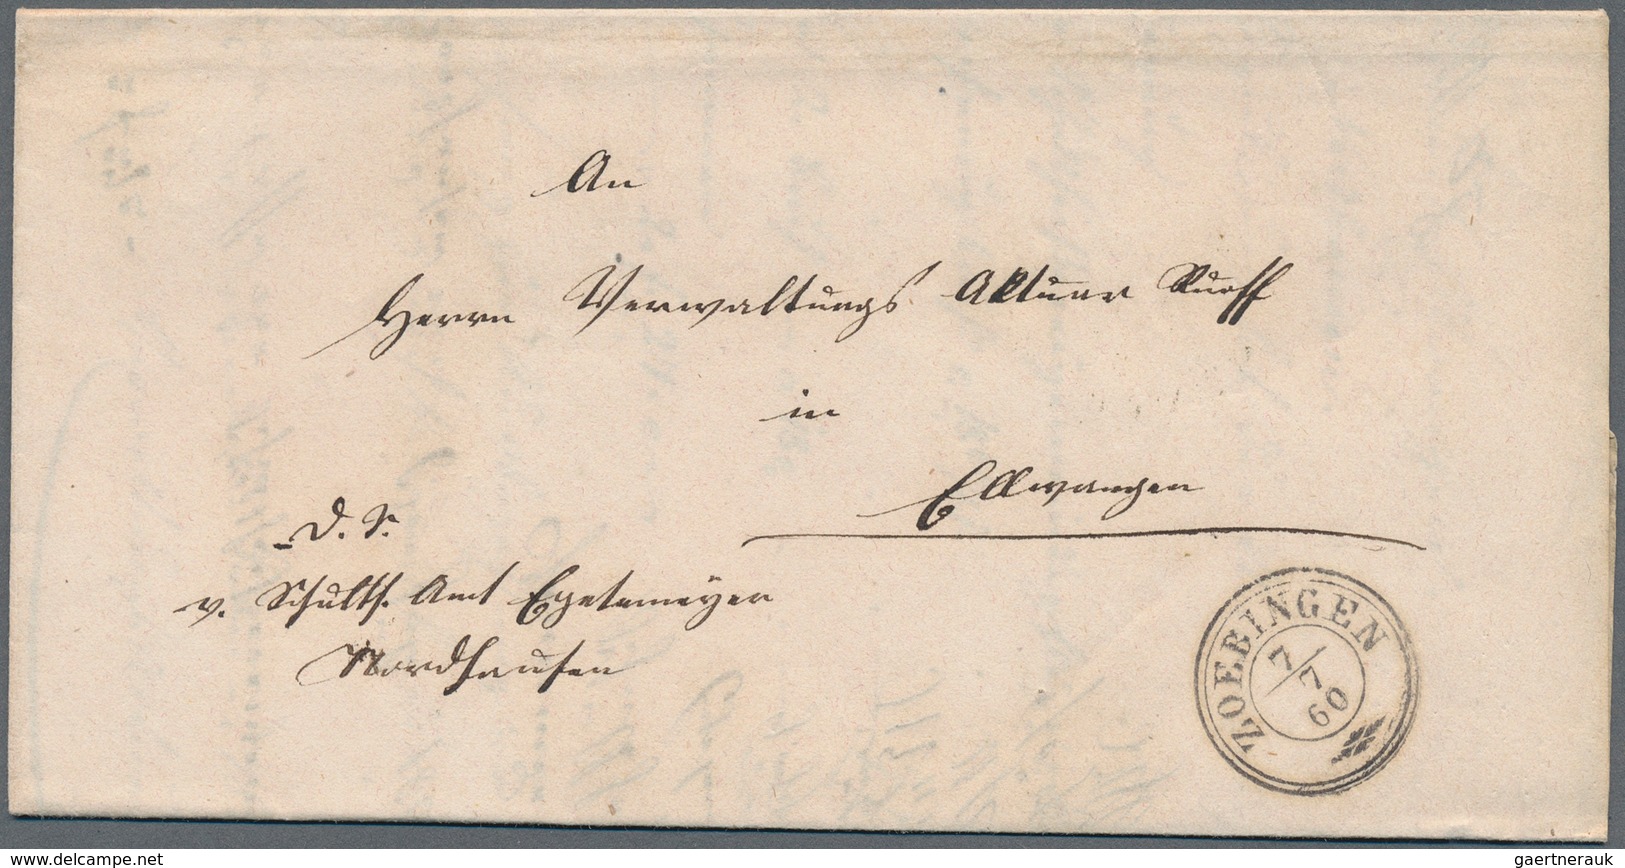 An
Herrn Verwaltungs Aktuar Ruoff
in
Ellwangen
D. S.
v. Schulth. Amt Egetemeÿer
Nordhausen
ZOEBINGEN
7/7
60
www.delcampe.net
gaertnerauk